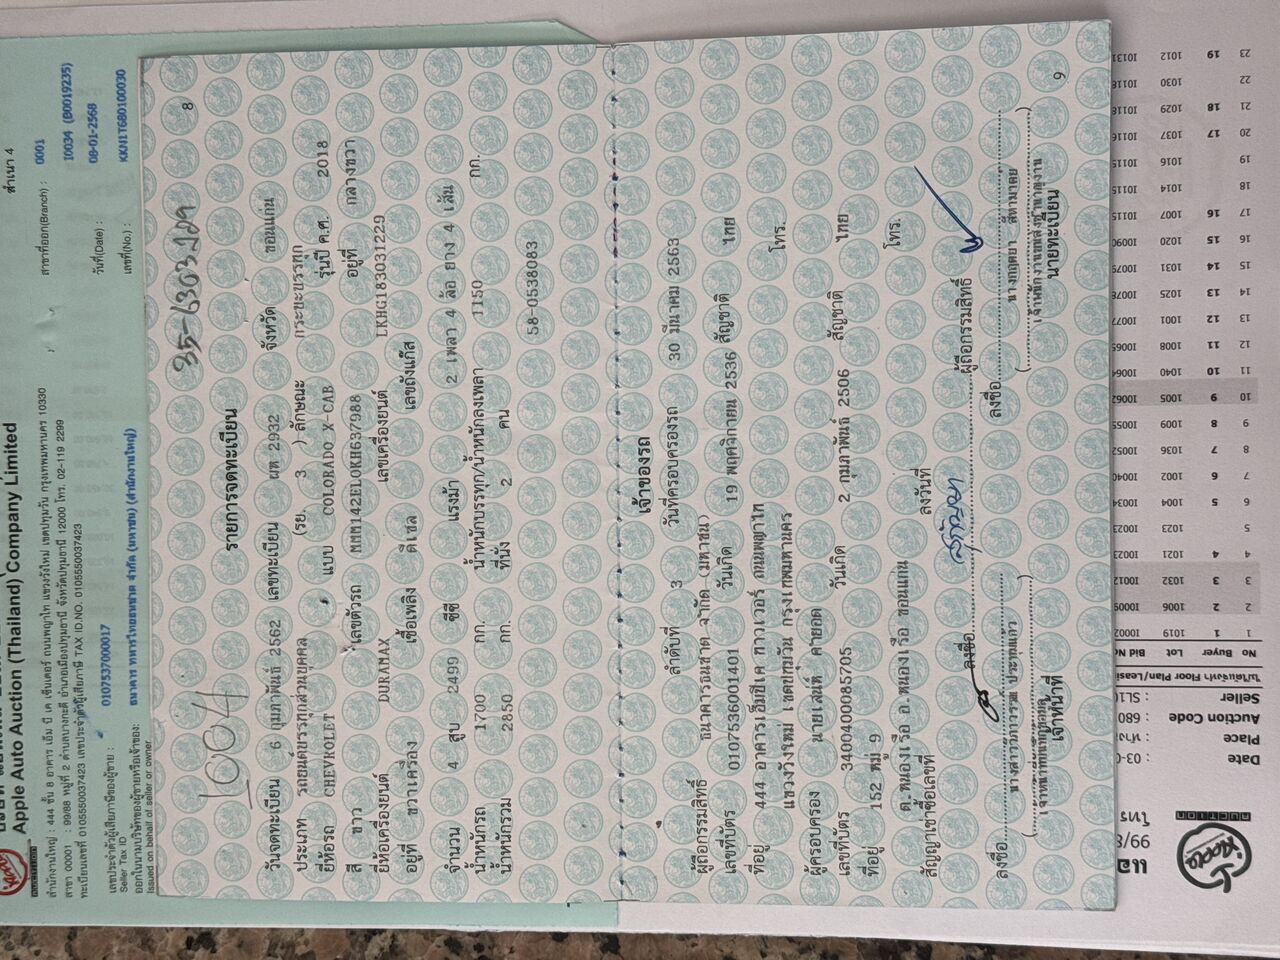 Apple Auto Auction (Thailand) Company Limited
สำเนา 4
สำนักงานใหญ่ : 444 ชั้น 8 อาคาร เอ็ม บี เค เซ็นเตอร์ ถนนพญาไท แขวงวังใหม่ เขตปทุมวัน กรุงเทพมหานคร 10330
สาขา 00001 : 99/98 หมู่ที่ 2 ตำบลบางกะดี อำเภอเมืองปทุมธานี จังหวัดปทุมธานี 12000 โทร. 02-119 2299
ทะเบียนเลขที่ 0105550037423 เลขประจำตัวผู้เสียภาษี TAX ID.NO. 0105550037423
สาขาที่ออก(Branch) : 0001
I0034 (B0019235)
วันที่(Date) : 08-01-2568
เลขที่(No.) : KKN1T680100030
เลขประจำตัวผู้เสียภาษีของผู้ขาย :
Seller Tax ID
0107537000017
ออกในนามบริษัทของผู้ขายหรือเจ้าของ:
Issued on behalf of seller or owner
ธนาคาร ทหารไทยธนชาต จำกัด (มหาชน) (สำนักงานใหญ่)
8
1004
35-6303229
รายการจดทะเบียน
วันจดทะเบียน 6 กุมภาพันธ์ 2562 เลขทะเบียน ผท 2932 จังหวัด ขอนแก่น
ประเภท รถยนต์บรรทุกส่วนบุคคล (รย. 3 ) ลักษณะ กระบะบรรทุก
ยี่ห้อรถ CHEVROLET แบบ COLORADO X-CAB รุ่นปี ค.ศ. 2018
สี ขาว เลขตัวรถ MMM142ELOKH637988 อยู่ที่ กลางขวา
ยี่ห้อเครื่องยนต์ DURAMAX เลขเครื่องยนต์ LKHG183031229
อยู่ที่ ขวาเครื่อง เชื้อเพลิง ดีเซล เลขถังแก๊ส
จำนวน 4 สูบ 2499 ซีซี แรงม้า 2 เพลา 4 ล้อ ยาง 4 เส้น
น้ำหนักรถ 1700 กก. น้ำหนักบรรทุก/น้ำหนักลงเพลา 1150 กก.
น้ำหนักรวม 2850 กก. ที่นั่ง 2 คน
58-0538083
เจ้าของรถ
ลำดับที่ 3 วันที่ครอบครองรถ 30 มีนาคม 2563
ผู้ถือกรรมสิทธิ์ ธนาคารธนชาต จำกัด (มหาชน)
เลขที่บัตร 0107536001401 วันเกิด 19 พฤศจิกายน 2536 สัญชาติ ไทย
ที่อยู่ 444 อาคารเอ็มบีเค ทาวเวอร์ ถนนพญาไท โทร.
แขวงวังใหม่ เขตปทุมวัน กรุงเทพมหานคร
ผู้ครอบครอง นายเสน่ห์ คำยอด
เลขที่บัตร 3400400085705 วันเกิด 2 กุมภาพันธ์ 2506 สัญชาติ ไทย
ที่อยู่ 152 หมู่ 9 โทร.
ต.หนองเรือ อ.หนองเรือ ขอนแก่น
สัญญาเช่าซื้อเลขที่ ลงวันที่
ลงชื่อ ผู้ถือกรรมสิทธิ์
ลงชื่อ
ลงชื่อ
เจ้าหน้าที่
นายทะเบียน
9
แอ
99/8
โทร
Date : 03-0
Place
Auction Code : 680
Seller : SLT
No Buyer Lot Bid No
1 1 1019 I0002
2 2 1006 I0009
3 3 1032 I0012
4 4 1021 I0023
5 1023 I0023
6 5 1004 I0034
7 6 1002 I0040
8 7 1036 I0052
9 8 1009 I0055
10 9 1005 I0062
11 10 1040 I0064
12 11 1008 I0065
13 12 1001 I0077
14 13 1025 I0078
15 14 1031 I0079
16 15 1020 I0090
17 16 1007 I0115
18 1014 I0115
19 1016 I0115
20 17 1037 I0116
21 18 1029 I0118
22 1030 I0118
23 19 1012 I0131